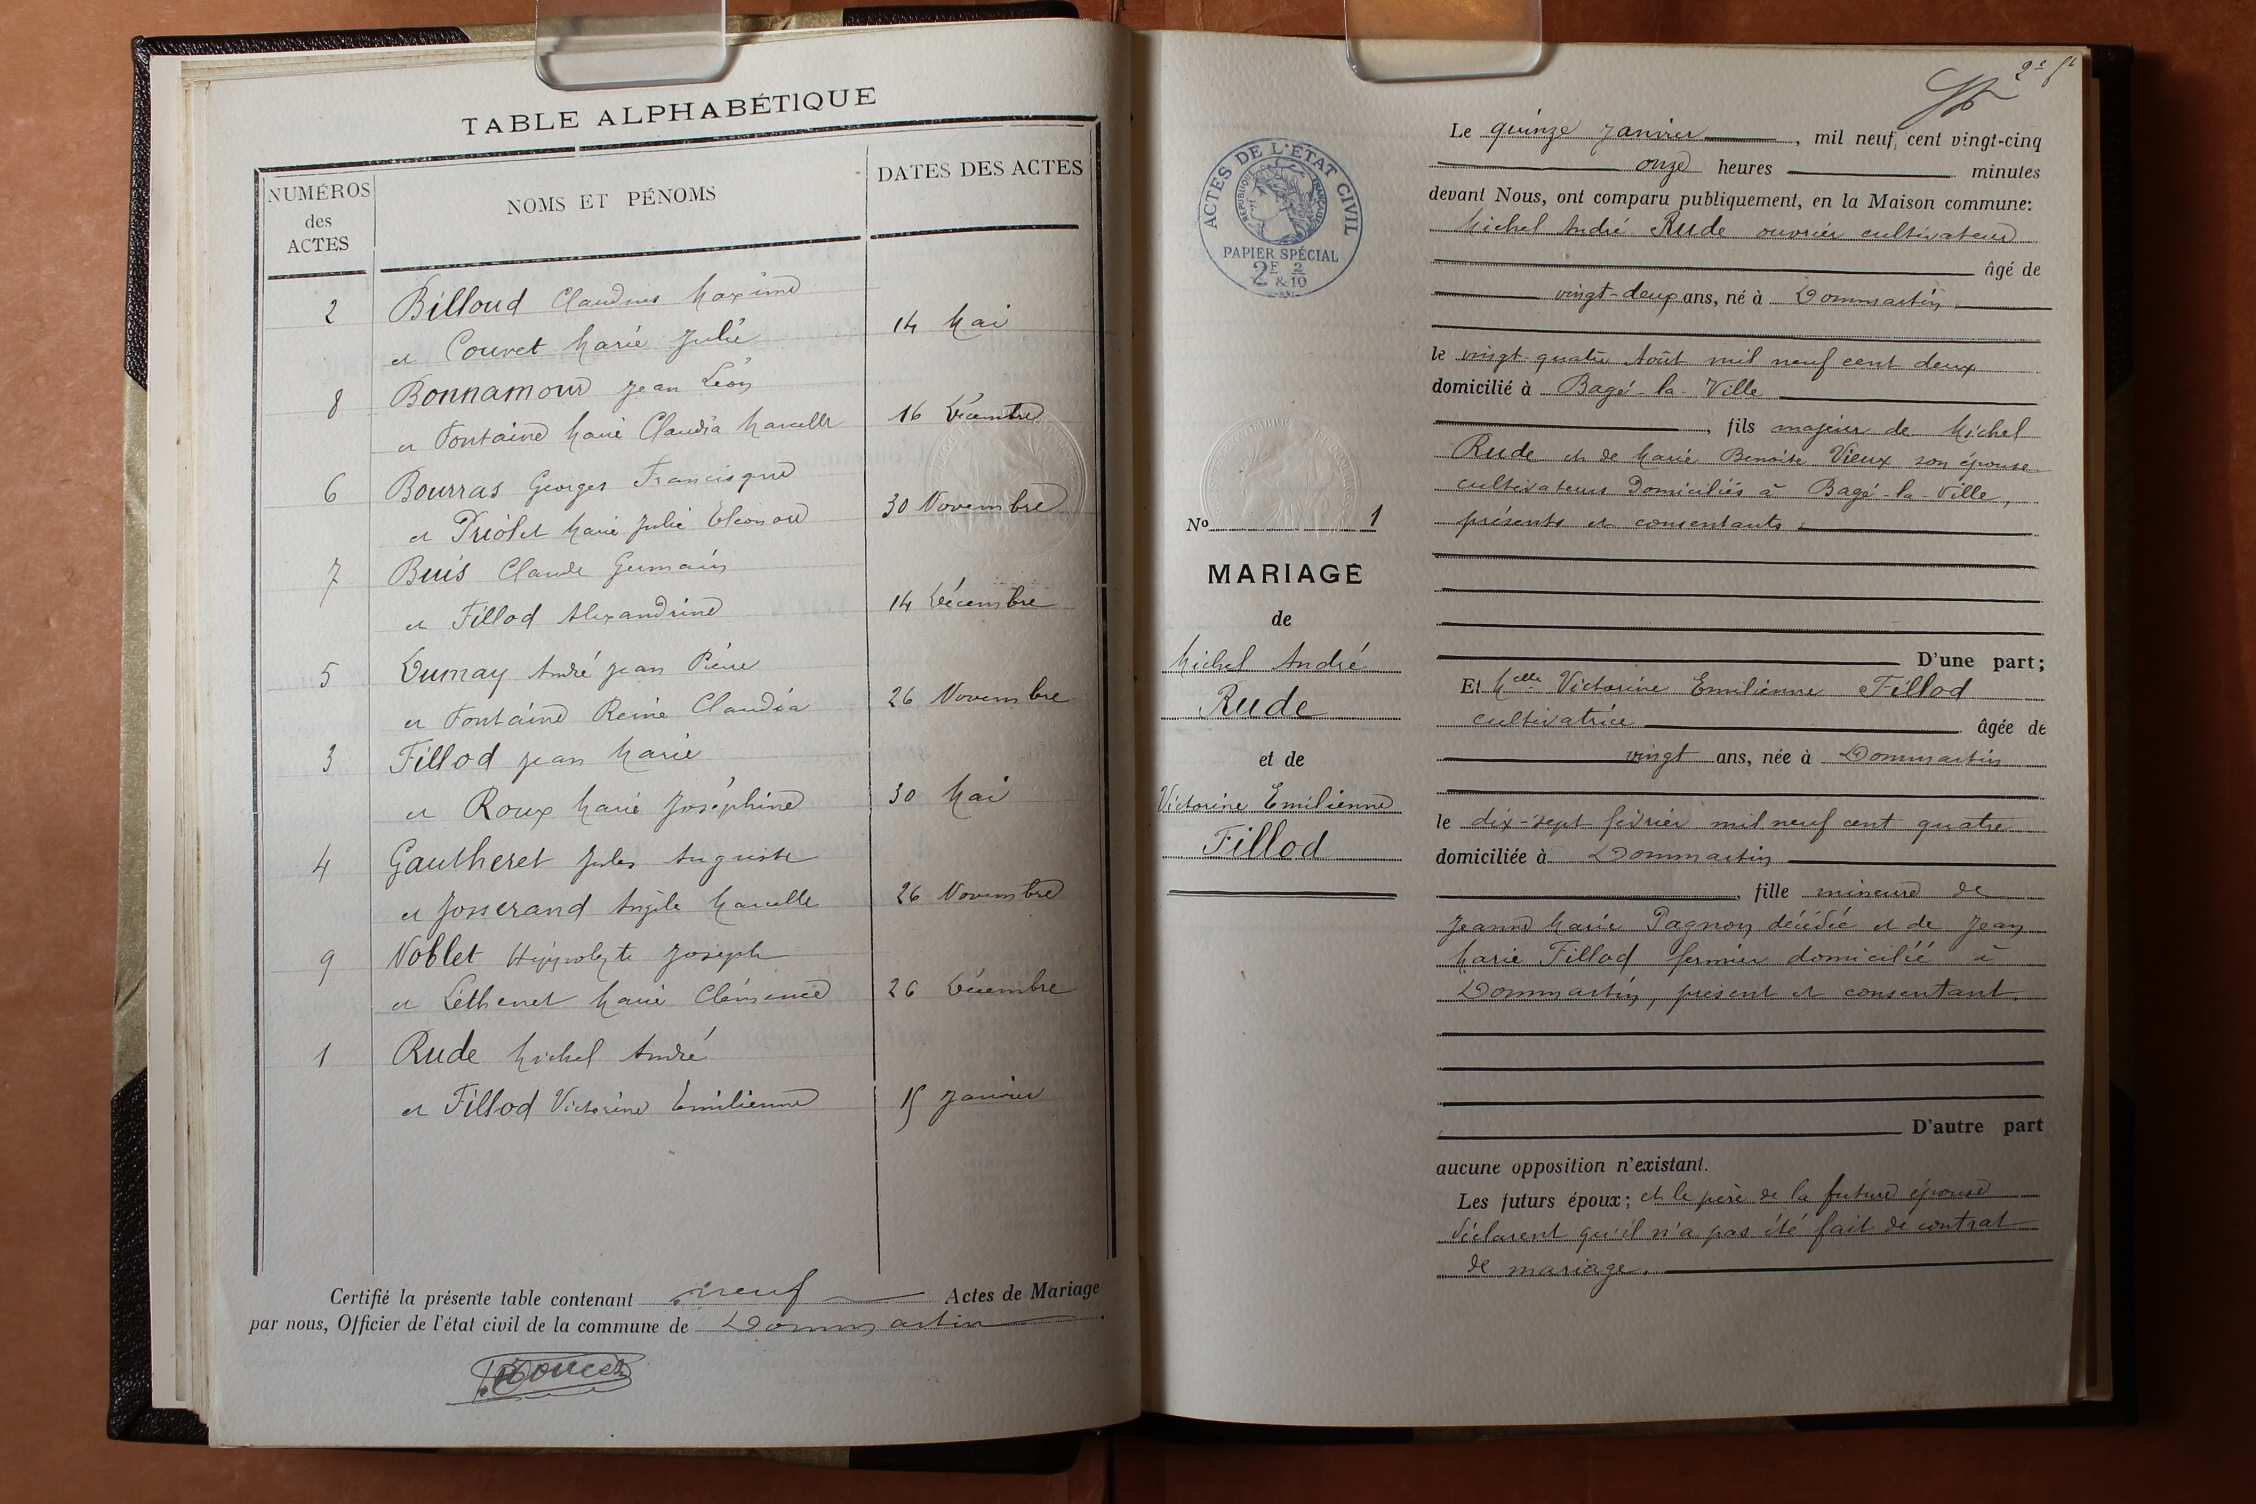 TABLE ALPHABÉTIQUE
NUMÉROS
des
ACTES
NOMS ET PÉNOMS
DATES DES ACTES
2 Billoud Claudius Maxime
et Couvet Marie Julie 14 Mai
8 Bonnamour Jean Léon
et Fontaine Marie Claudia Marcelle 16 Décembre
6 Bourras Georges Francisque
et Priolet Marie Julie Eléonore 30 Novembre
7 Buis Claude Germain
et Fillod Alexandrine 14 Décembre
5 Dumay André Jean Pierre
et Fontaine Reine Claudia 26 Novembre
3 Fillod Jean Marie
et Roux Marie Joséphine 30 Mai
4 Gautheret Jules Auguste
et Josserand Angèle Marcelle 26 Novembre
9 Noblet Hippolyte Joseph
et Léthenet Marie Clémence 26 Décembre
1 Rude Michel André
et Fillod Victorine Emilienne 15 Janvier
Certifié la présente table contenant neuf Actes de Mariage
par nous, Officier de l'état civil de la commune de Dommartin.
2e ft
ACTES DE L'ÉTAT CIVIL
RÉPUBLIQUE FRANÇAISE
PAPIER SPÉCIAL
2F 2/10
&
No 1
MARIAGE
de
Michel André
Rude
et de
Victorine Emilienne
Fillod
Le quinze Janvier, mil neuf cent vingt-cinq
onze heures minutes
devant Nous, ont comparu publiquement, en la Maison commune:
Michel André Rude ouvrier cultivateur
âgé de
vingt-deux ans, né à Dommartin
le vingt-quatre Août mil neuf cent deux
domicilié à Bagé-la-Ville
, fils majeur de Michel
Rude et de Marie Benoite Vieux son épouse
cultivateurs domiciliés à Bagé-la-Ville,
présents et consentants.
D'une part;
Et Melle Victorine Emilienne Fillod
cultivatrice âgée de
vingt ans, née à Dommartin
le dix-sept février mil neuf cent quatre
domiciliée à Dommartin
, fille mineure de
Jeanne Marie Pagnon décédée et de Jean
Marie Fillod fermier domicilié à
Dommartin, présent et consentant.
D'autre part
aucune opposition n'existant.
Les futurs époux; et le père de la future épouse
déclarent qu'il n'a pas été fait de contrat
de mariage.